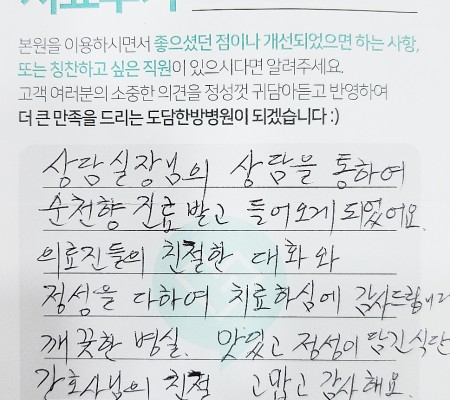 치료후기
본원을 이용하시면서 좋으셨던 점이나 개선되었으면 하는 사항,
또는 칭찬하고 싶은 직원이 있으시다면 알려주세요.
고객 여러분의 소중한 의견을 정성껏 귀담아듣고 반영하여
더 큰 만족을 드리는 도담한방병원이 되겠습니다 :)
상담실장님의 상담을 통하여
순천향 진료 받고 들어오게 되었어요.
의료진들의 친절한 대화와
정성을 다하여 치료하심에 감사드립니다
깨끗한 병실. 맛있고 정성이 담긴 식단
간호사님의 친절 고맙고 감사해요.